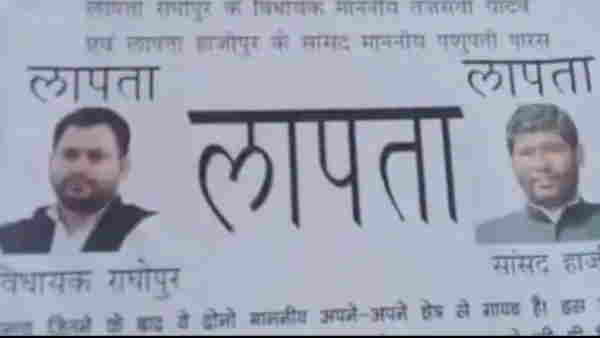 लापता राघोपुर के विधायक माननीय तेजस्वी यादव
एवं लापता हाजीपुर के सांसद माननीय पशुपती पारस
लापता
लापता
लापता
विधायक राघोपुर
सांसद
के बाद ये दोनों माननीय अपने-अपने क्षेत्र से गायब है। इस